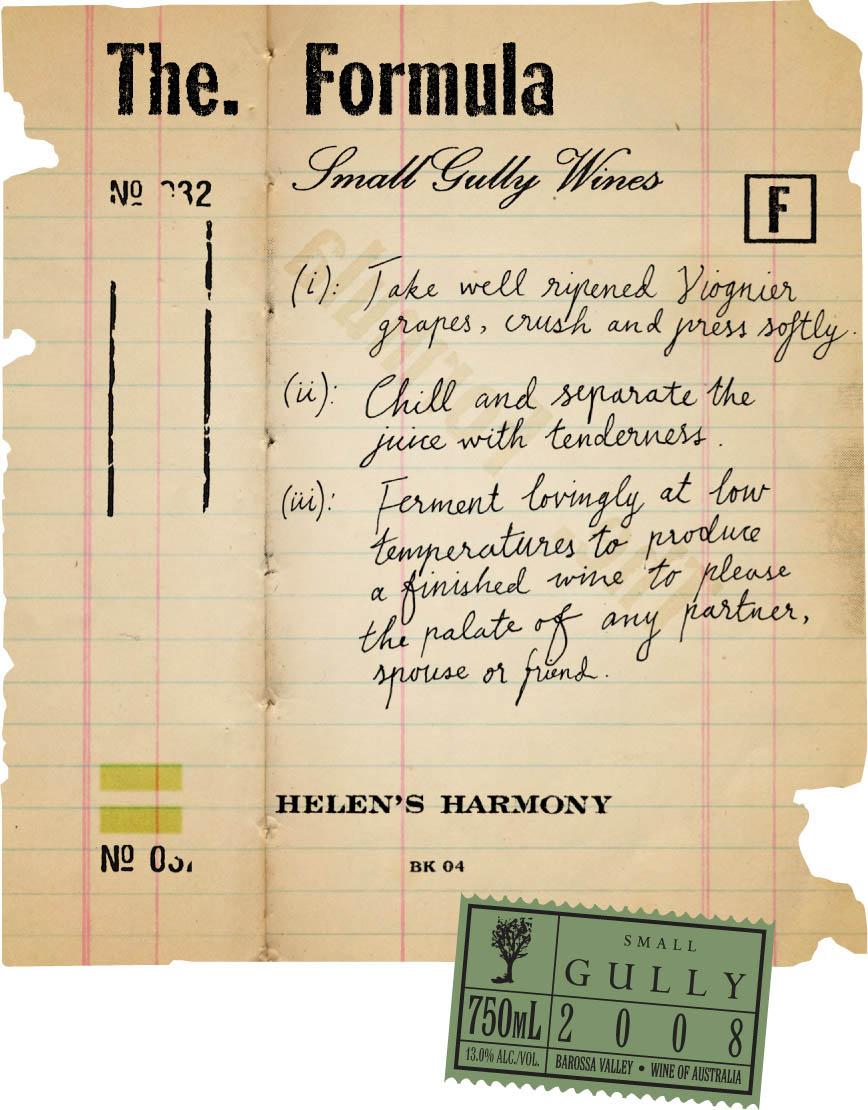 The. Formula
Small Gully Wines
Nº 032
F
(i): Take well ripened Viognier
grapes, crush and press softly.
(ii): Chill and separate the
juice with tenderness.
(iii): Ferment lovingly at low
temperatures to produce
a finished wine to please
the palate of any partner,
spouse or friend.
HELEN'S HARMONY
Nº 032
BK 04
SMALL
GULLY
750ML 2008
13.0% ALC./VOL. BAROSSA VALLEY • WINE OF AUSTRALIA